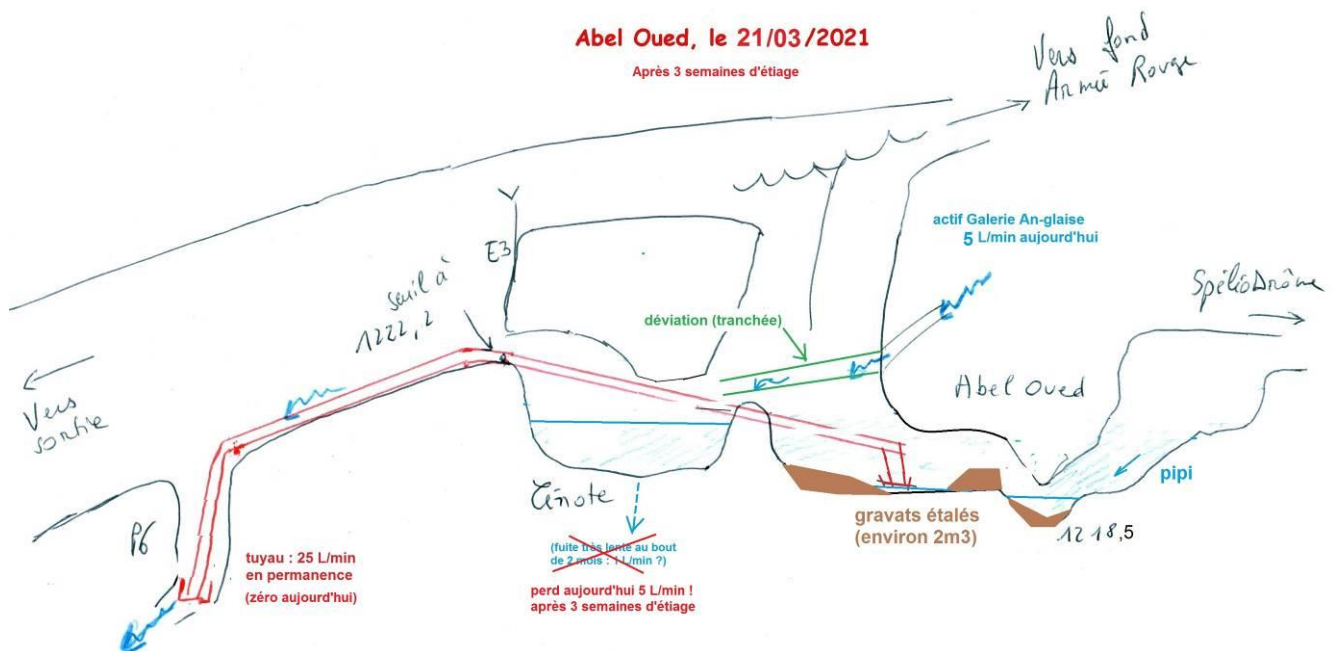 Abel Oued, le 21/03/2021
Après 3 semaines d'étiage
Vers fond
Armée Rouge
actif Galerie An-glaise
5 L/min aujourd'hui
E3
seuil à
1222,2
SpéléoDrôme
déviation (tranchée)
Vers
sortie
Abel Oued
pipi
Cénote
gravats étalés
(environ 2m3)
1218,5
P6
tuyau : 25 L/min
en permanence
(zéro aujourd'hui)
(fuite très lente au bout
de 2 mois : 1 L/min ?)
perd aujourd'hui 5 L/min !
après 3 semaines d'étiage